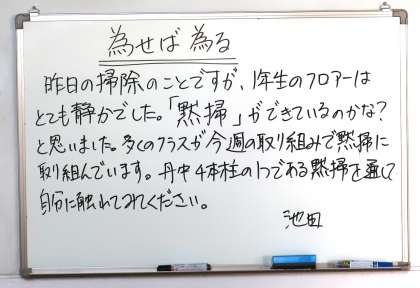 為せば為る
昨日の掃除のことですが、1年生のフロアーは
とても静かでした。「黙掃」ができているのかな?
と思いました。多くのクラスが今週の取り組みで黙掃に
取り組んでいます。丹中4本柱の1つである黙掃を通して
自分に触れてみてください。
池田